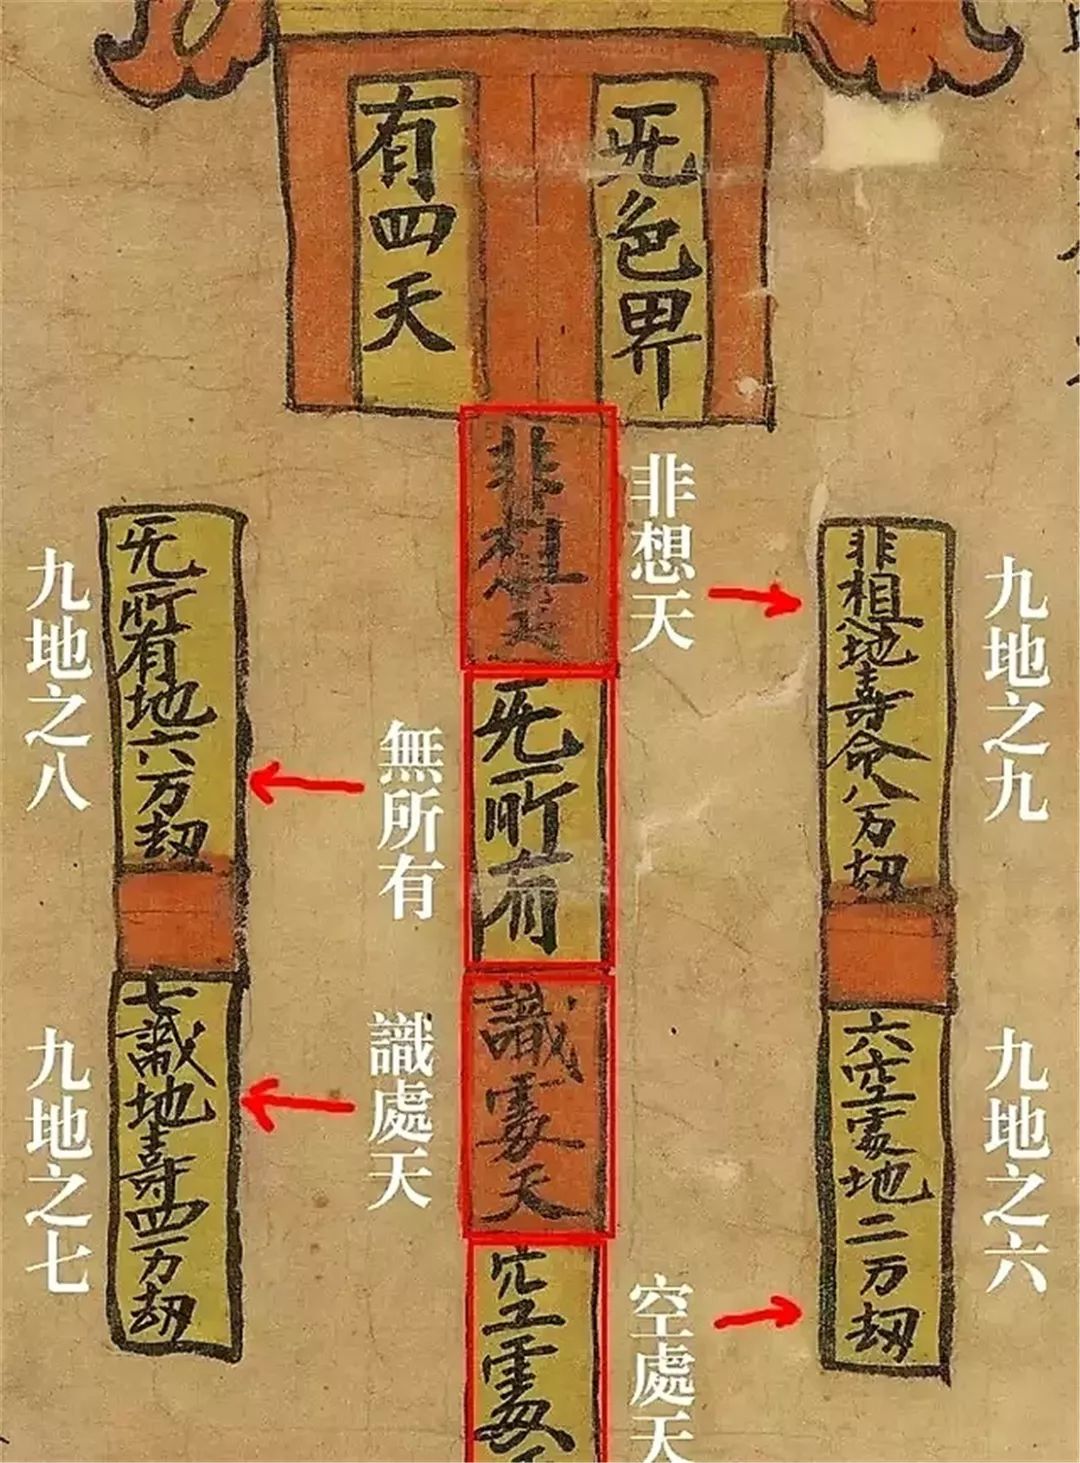 无色界
有四天
非想天
无所有
識處天
空處
非想天
無所有
識處天
空處天
九地之九
非想地壽命八万劫
九地之六
六空處地二万劫
无所有地六万劫
九地之八
七識地壽四万劫
九地之七